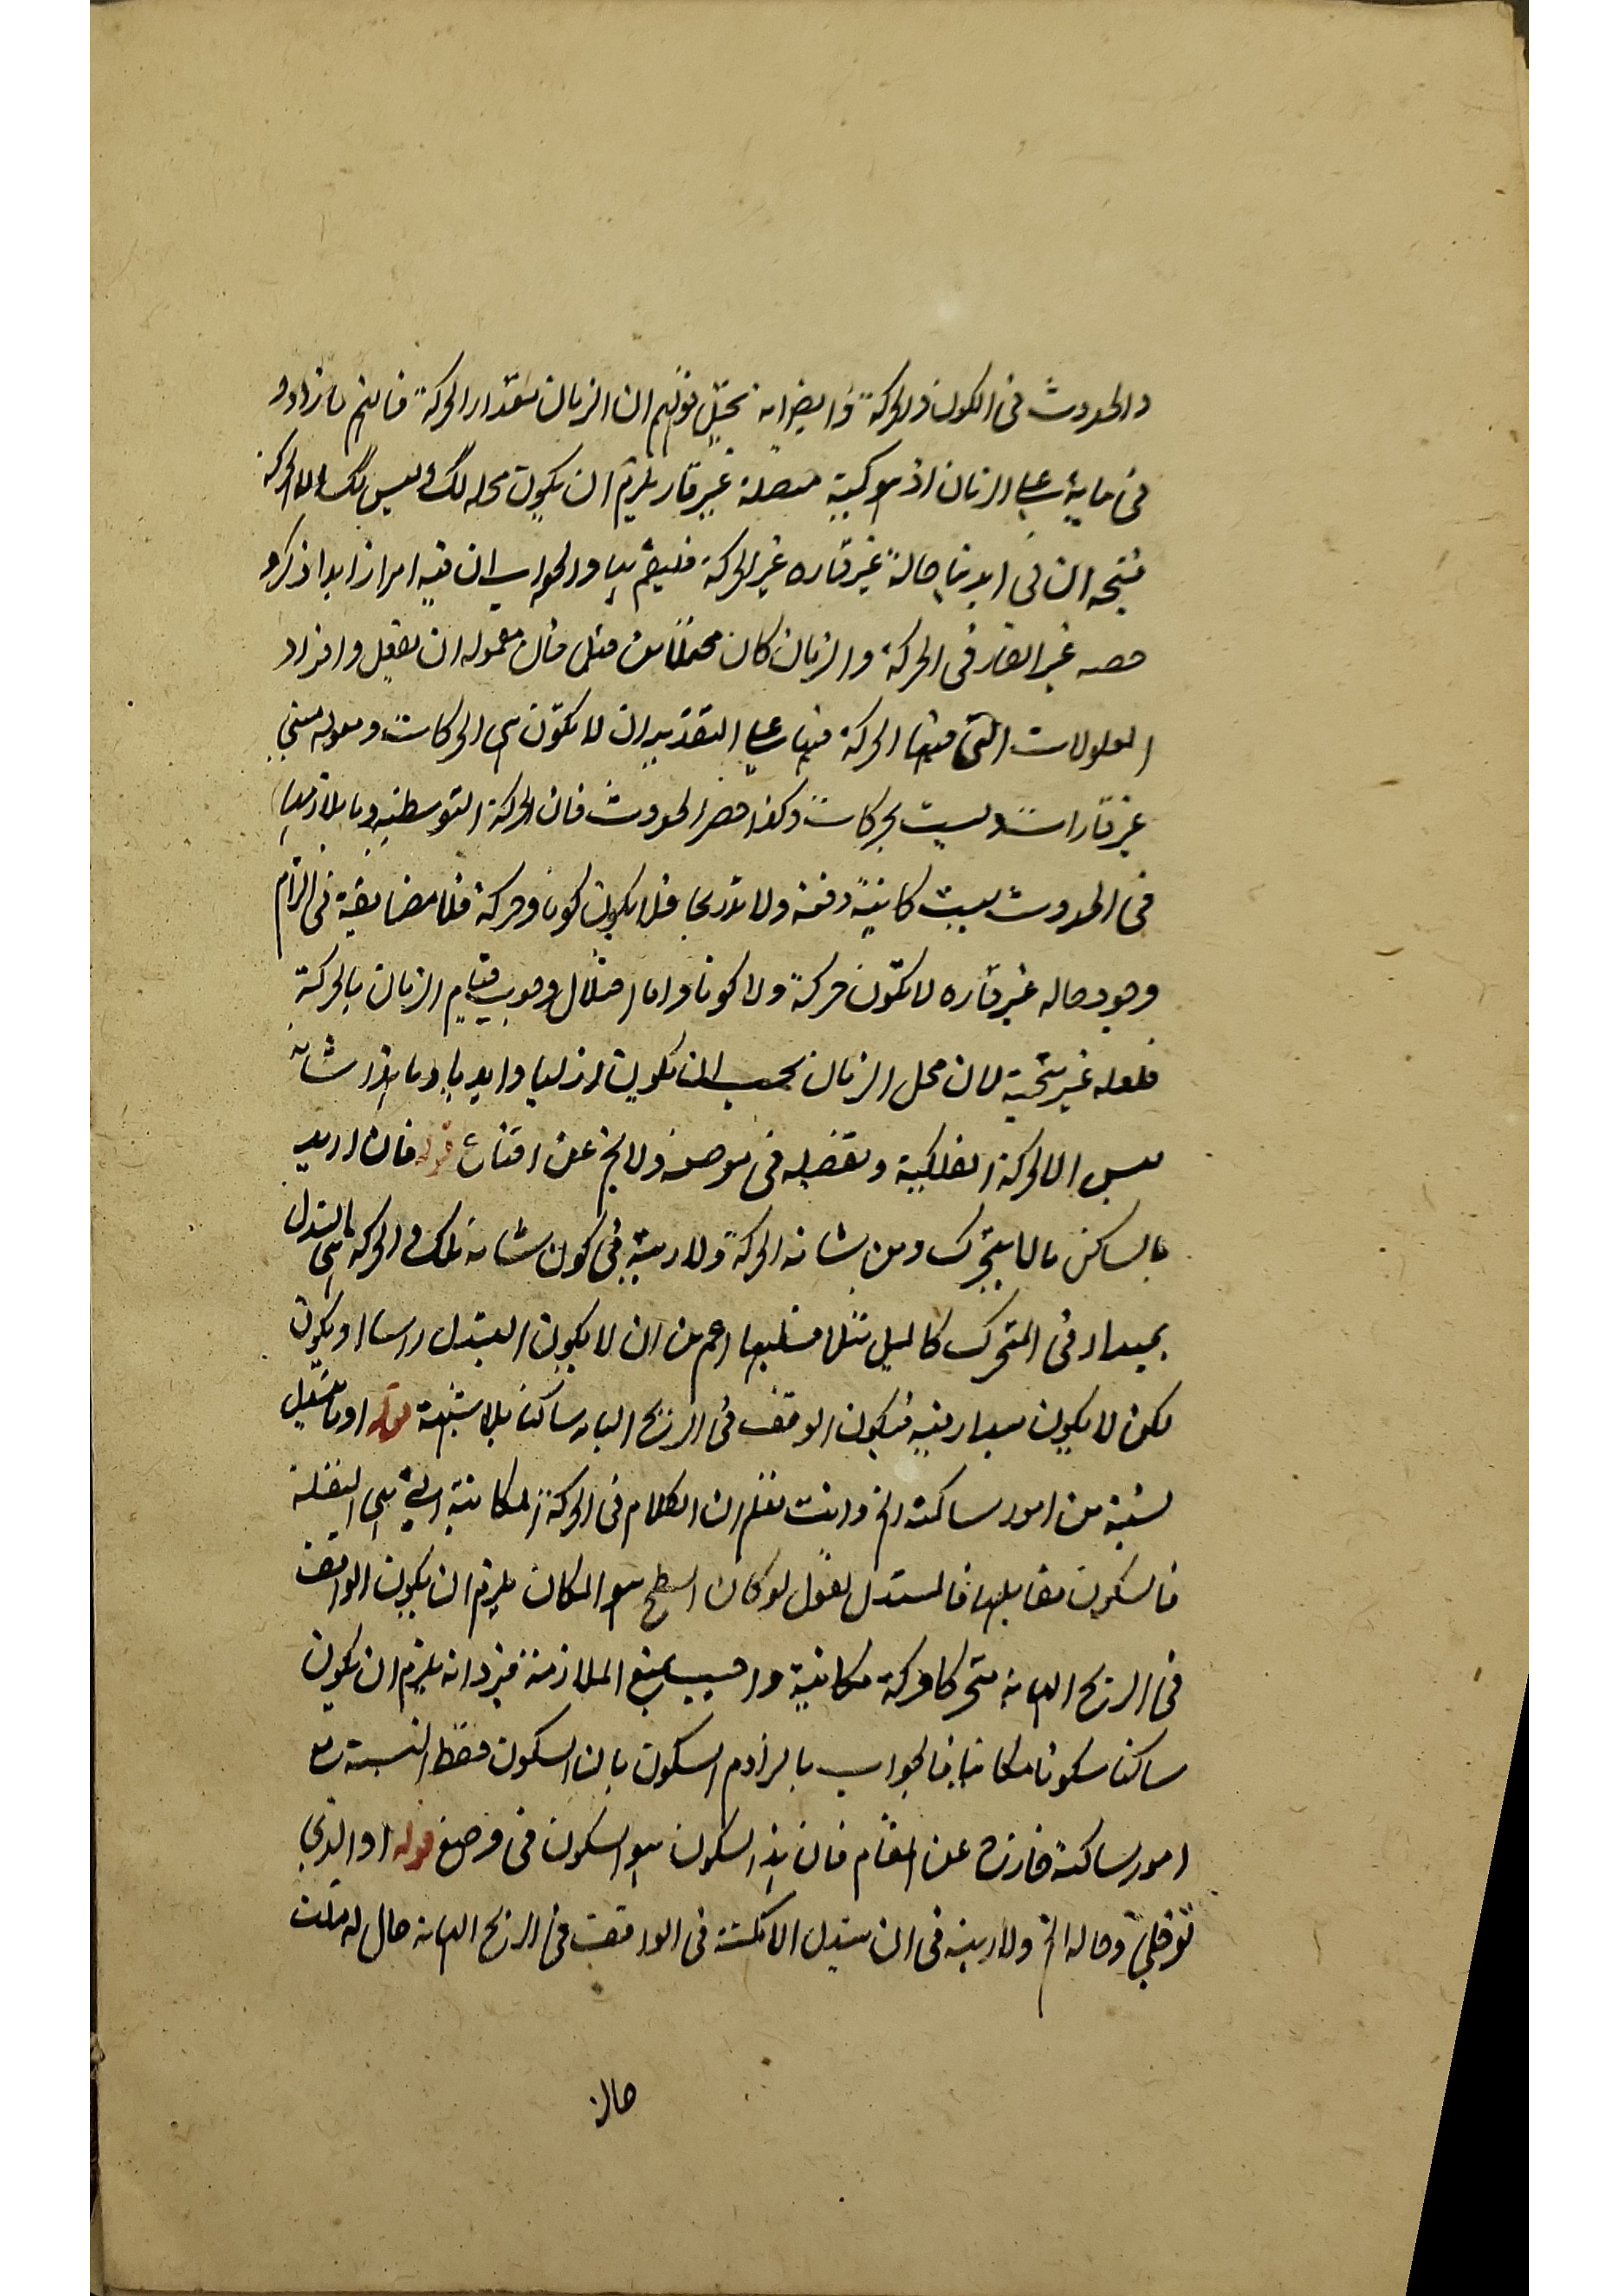 والحدوث فى الكون والحركة وايضا انه تختل قولهم ان الزمان مقدار الحركة فانهم ما زادوا
فى ماهية على الزمان اذ هو كمية متصلة غير قار يلزم ان يكون محله كك وليس كك الا الحركة
فيتجه ان فى ابدينا حالة غير قاره غير الحركة فليقم بها والجواب ان فيه امرا زايدا ذكروا
حصه غير القار فى الحركة والزمان كان محتملا من قبل فان مقوله ان يفعل وافراد
المقولات التى فيها الحركة فيها على التقدير ان لا تكون هى الحركات ومقوله متى
غير قارات وليست بحركات وكذا حصر الحدوث فان الحركة التوسطية وما يلازمها
فى الحدوث ليست كاينة دفعة ولا تدريجا فلا يكون كونا وحركة فلا مضايقة فى الزام
وجود حاله غير قاره لا تكون حركة ولا كونا واما اختلال وجوب قيام الزمان بالحركة
فلعله غير متجه لان محل الزمان يجب ان يكون ازليا وابديا وما هذا شانه
ليس الا الحركة الفلكية وتفصيله فى موضعه ولا يخ عن اقناع قوله فان اريد
بالساكن ما لا يتحرك ومن شانه الحركة ولا ريبة فى كون شانه ذلك والحركة هى التبدل
بمبدا فى المتحرك كالميل مثلا فسلبها اعم من ان لا يكون التبدل راسا او يكون
لكن لا يكون مبدا فيه فيكون الواقف فى الريح الهابه ساكنا بلا شبهة قوله او ما تستبدل
نسبة من امور ساكنة الخ وانت تعلم ان الكلام فى الحركة المكانية التى هى النقلة
فالسكون مقابلها فالمستدل يقول لو كان السطح هو المكان يلزم ان يكون الواقف
فى الريح الهابه متحركا حركة مكانية واجيب بمنع الملازمة فيرد انه يلزم ان يكون
ساكنا سكونا مكانيا فالجواب بالزام السكون بان السكون حفظ النسبة مع
امور ساكنة خارج عن المقام فان هذا السكون هو السكون فى وضع قوله او الذى
لو خلى وحاله الخ ولا ريبه فى ان تبدل الامكنة فى الواقف فى الريح الهابه حال له قلت
حال